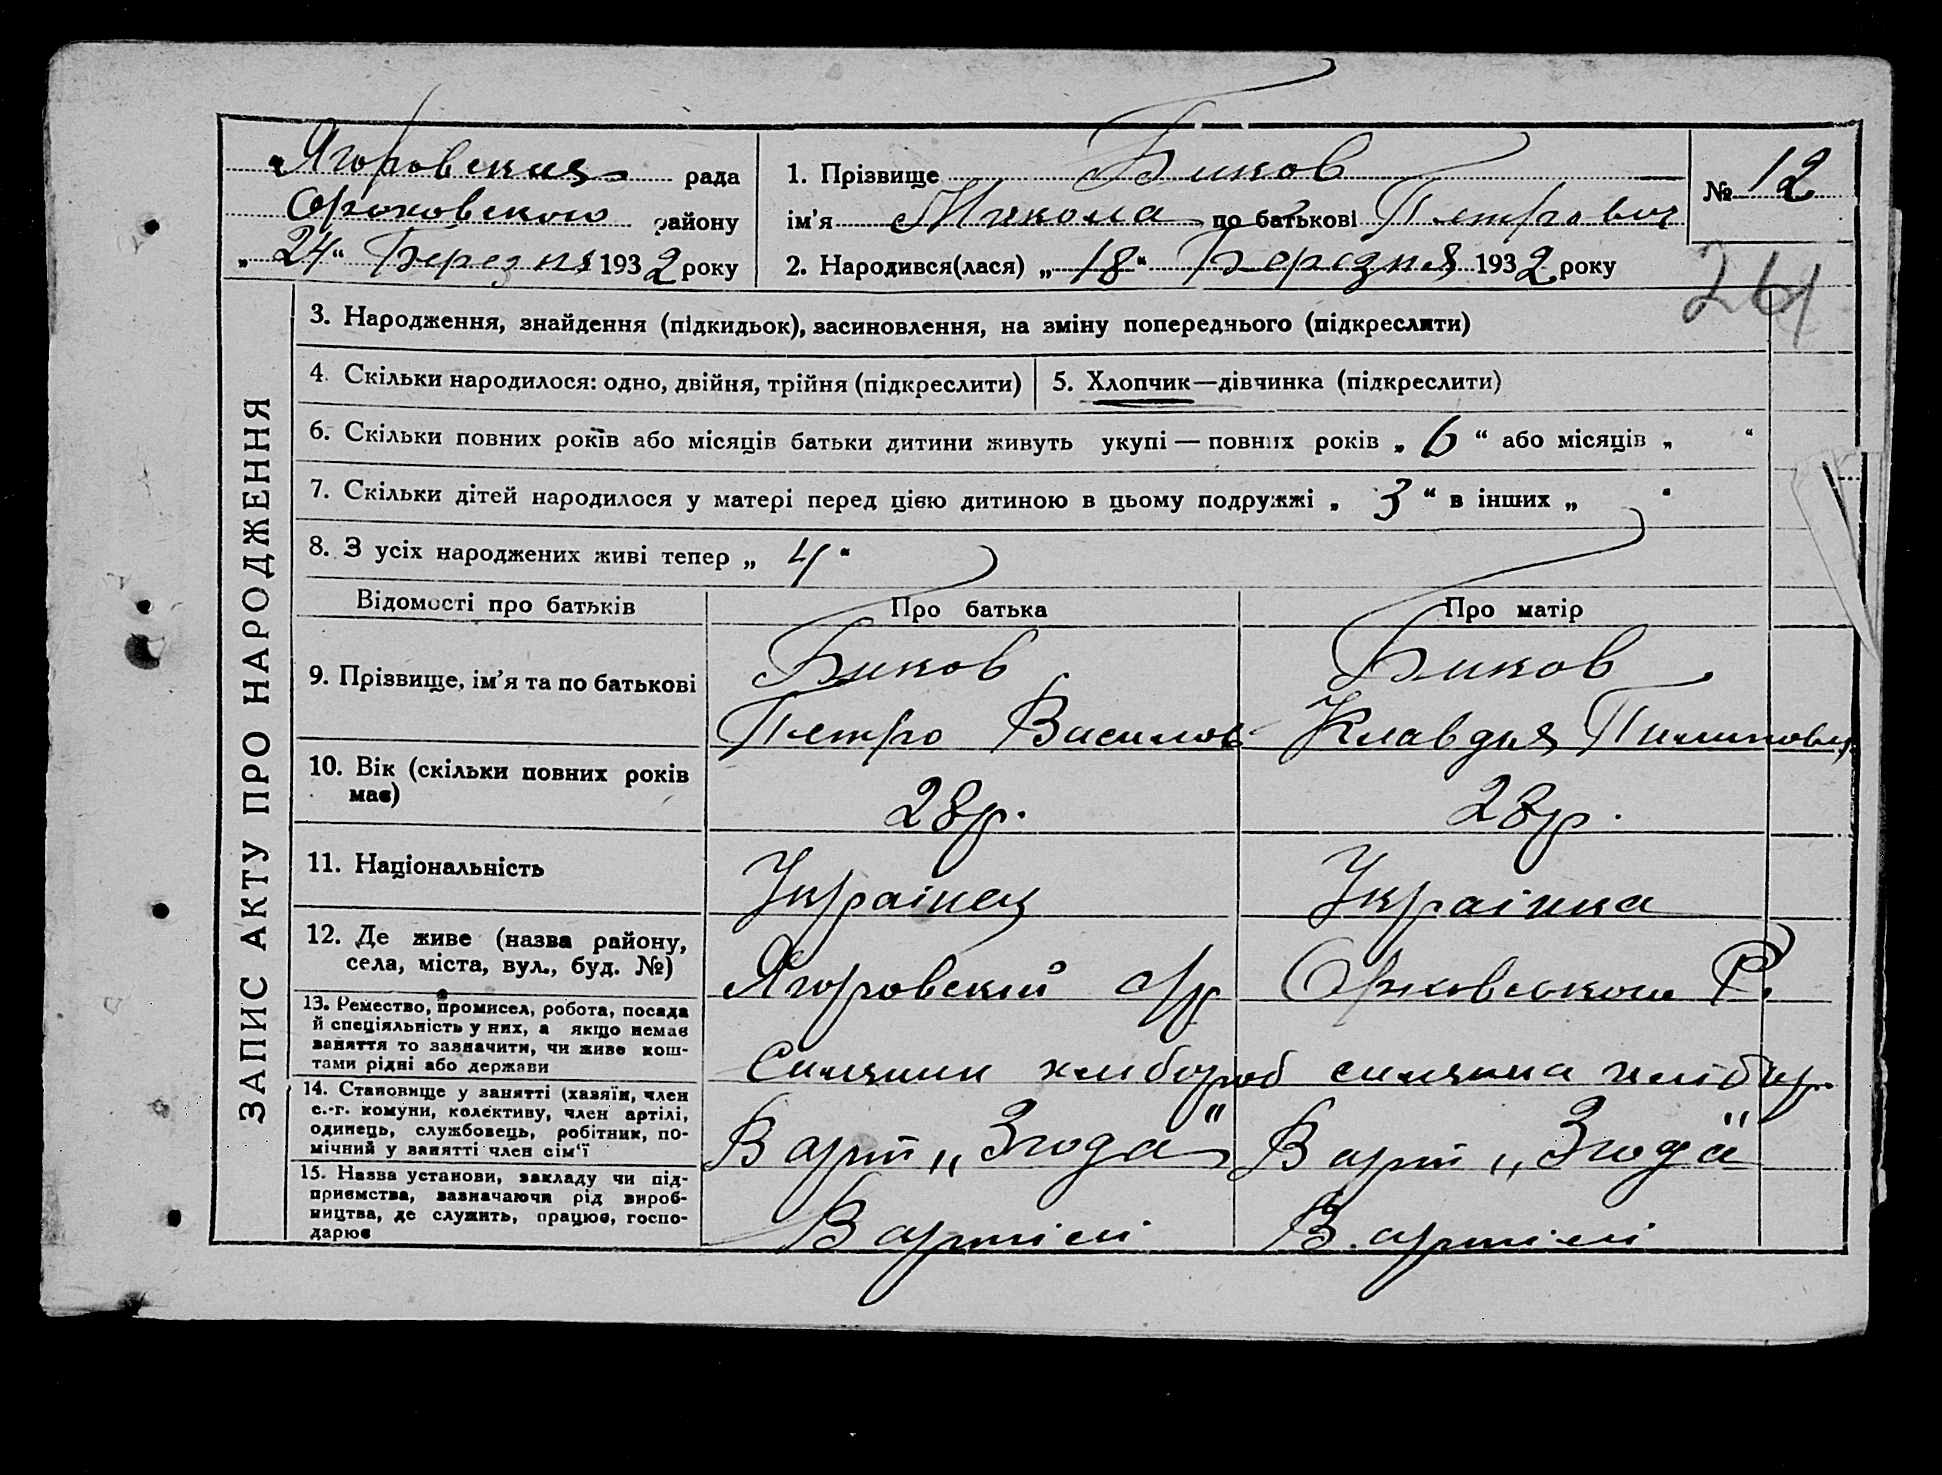 Ягоровская рада
Оріховського району
„24“ Березня 1932 року
1. Прізвище Биков
ім’я Микола по батькові Петрович
2. Народився(лася) „18“ Березня 1932 року
№ 12
261
ЗАПИС АКТУ ПРО НАРОДЖЕННЯ
3. Народження, знайдення (підкидьок), засиновлення, на зміну попереднього (підкреслити)
4. Скільки народилося: одно, двійня, трійня (підкреслити)
5. Хлопчик—дівчинка (підкреслити)
6. Скільки повних років або місяців батьки дитини живуть укупі — повних років „ 6 “ або місяців „ “
7. Скільки дітей народилося у матері перед цією дитиною в цьому подружжі „ 3 “ в інших „ “
8. З усіх народжених живі тепер „ 4 “
Відомості про батьків
Про батька
Про матір
9. Прізвище, ім’я та по батькові
Биков
Петро Василов
Биков
Клавдия Пилипович
10. Вік (скільки повних років
має)
28р.
28р.
11. Національність
Українец
Українка
12. Де живе (назва району,
села, міста, вул., буд. №)
Ягоровскій с/р Оріховського Р.
13. Ремество, промисел, робота, посада
й спеціяльність у них, а якщо немає
заняття то зазначити, чи живе кош-
тами рідні або держави
Силянин хлибороб
силянка хлибор.
14. Становище у занятті (хазяїн, член
с.-г. комуни, колективу, член артілі,
одинець, службовець, робітник, по-
мічний у занятті член сім‘ї
В арт „Згода“
В арт „Згода“
15. Назва установи, закладу чи під-
приємства, зазначаючи рід вироб-
ництва, де служить, працює, госпо-
дарює
В артілі
В. артілі